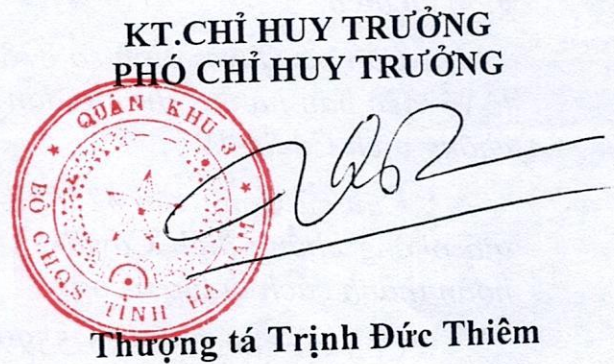 KT.CHỈ HUY TRƯỞNG
PHÓ CHỈ HUY TRƯỞNG
QUÂN KHU 3
BỘ CHQS TỈNH HÀ NAM
Thượng tá Trịnh Đức Thiêm